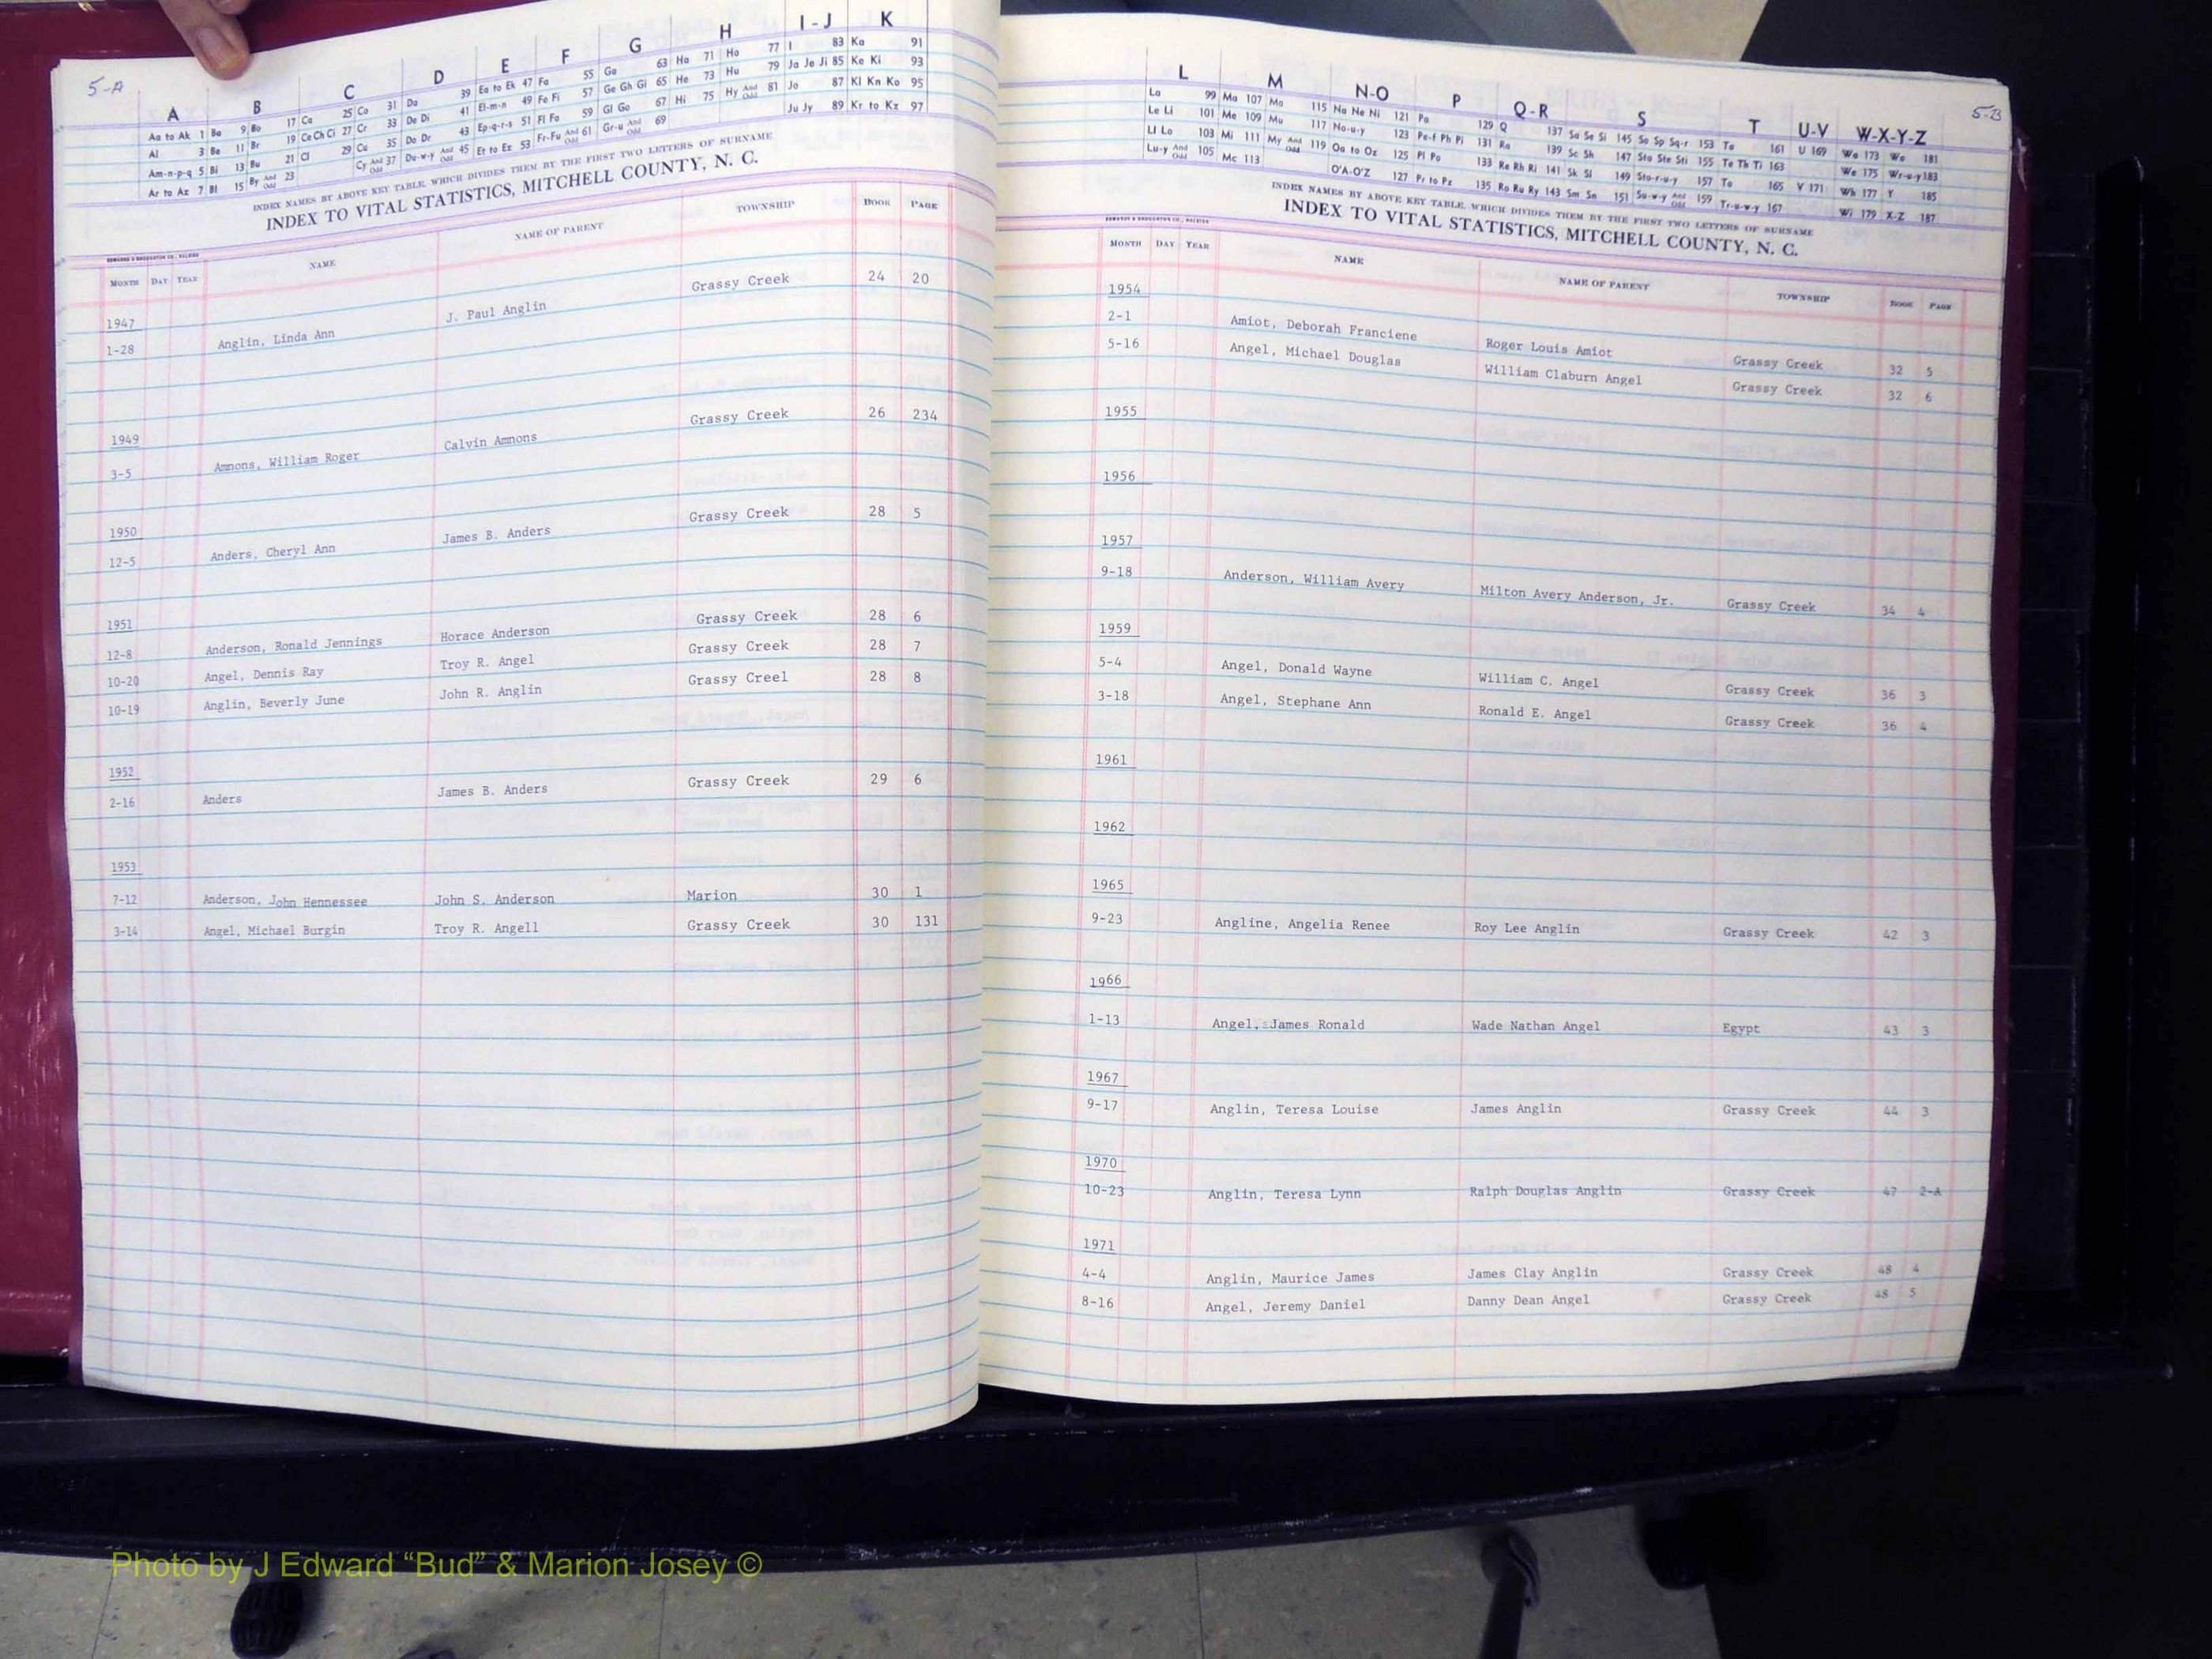 5-A
A B C D E F G H I-J K
Aa to Ak 1 Ba 9 Bo 17 Ca 25 Co 31 Da 39 Ea to Ek 47 Fa 55 Ga 63 Ha 71 Ho 77 I 83 Ka 91
Al 3 Be 11 Br 19 Ce Ch Ci 27 Cr 33 De Di 41 El-m-n 49 Fe Fi 57 Ge Gh Gi 65 He 73 Hu 79 Ja Je Ji 85 Ke Ki 93
Am-n-p-q 5 Bi 13 Bu 21 Cl 29 Cu 35 Do Dr 43 Ep-q-r-s 51 Fl Fo 59 Gl Go 67 Hi 75 Hy And Odd 81 Jo 87 Kl Kn Ko 95
Ar to Az 7 Bl 15 By And Odd 23 Cy And Odd 37 Du-w-y And Odd 45 Et to Ez 53 Fr-Fu And Odd 61 Gr-u And Odd 69 Ju Jy 89 Kr to Kz 97
INDEX NAMES BY ABOVE KEY TABLE, WHICH DIVIDES THEM BY THE FIRST TWO LETTERS OF SURNAME
INDEX TO VITAL STATISTICS, MITCHELL COUNTY, N. C.
EDWARDS & BROUGHTON CO., RALEIGH
MONTH DAY YEAR NAME NAME OF PARENT TOWNSHIP BOOK PAGE
1947
1-28 Anglin, Linda Ann J. Paul Anglin Grassy Creek 24 20
1949
3-5 Ammons, William Roger Calvin Ammons Grassy Creek 26 234
1950
12-5 Anders, Cheryl Ann James B. Anders Grassy Creek 28 5
1951
12-8 Anderson, Ronald Jennings Horace Anderson Grassy Creek 28 6
10-20 Angel, Dennis Ray Troy R. Angel Grassy Creek 28 7
10-19 Anglin, Beverly June John R. Anglin Grassy Creel 28 8
1952
2-16 Anders James B. Anders Grassy Creek 29 6
1953
7-12 Anderson, John Hennessee John S. Anderson Marion 30 1
3-14 Angel, Michael Burgin Troy R. Angell Grassy Creek 30 131
5-B
L M N-O P Q-R S T U-V W-X-Y-Z
La 99 Ma 107 Mo 115 Na Ne Ni 121 Pa 129 Q 137 Sa Se Si 145 So Sp Sq-r 153 Ta 161 U 169 Wa 173 Wo 181
Le Li 101 Me 109 Mu 117 No-u-y 123 Pe-f Ph Pi 131 Ra 139 Sc Sh 147 Sta Ste Sti 155 Te Th Ti 163 We 175 Wr-u-y 183
Ll Lo 103 Mi 111 My And Odd 119 Oa to Oz 125 Pl Po 133 Re Rh Ri 141 Sk Sl 149 Sto-r-u-y 157 To 165 V 171 Wh 177 Y 185
Lu-y And Odd 105 Mc 113 O'A-O'Z 127 Pr to Pz 135 Ro Ru Ry 143 Sm Sn 151 Su-w-y And Odd 159 Tr-u-w-y 167 Wi 179 X-Z 187
INDEX NAMES BY ABOVE KEY TABLE, WHICH DIVIDES THEM BY THE FIRST TWO LETTERS OF SURNAME
INDEX TO VITAL STATISTICS, MITCHELL COUNTY, N. C.
EDWARDS & BROUGHTON CO., RALEIGH
MONTH DAY YEAR NAME NAME OF PARENT TOWNSHIP BOOK PAGE
1954
2-1 Amiot, Deborah Franciene Roger Louis Amiot Grassy Creek 32 5
5-16 Angel, Michael Douglas William Claburn Angel Grassy Creek 32 6
1955
1956
1957
9-18 Anderson, William Avery Milton Avery Anderson, Jr. Grassy Creek 34 4
1959
5-4 Angel, Donald Wayne William C. Angel Grassy Creek 36 3
3-18 Angel, Stephane Ann Ronald E. Angel Grassy Creek 36 4
1961
1962
1965
9-23 Angline, Angelia Renee Roy Lee Anglin Grassy Creek 42 3
1966
1-13 Angel, James Ronald Wade Nathan Angel Egypt 43 3
1967
9-17 Anglin, Teresa Louise James Anglin Grassy Creek 44 3
1970
10-23 Anglin, Teresa Lynn Ralph Douglas Anglin Grassy Creek 47 2-A
1971
4-4 Anglin, Maurice James James Clay Anglin Grassy Creek 48 4
8-16 Angel, Jeremy Daniel Danny Dean Angel Grassy Creek 48 5
Photo by J Edward “Bud” & Marion Josey ©